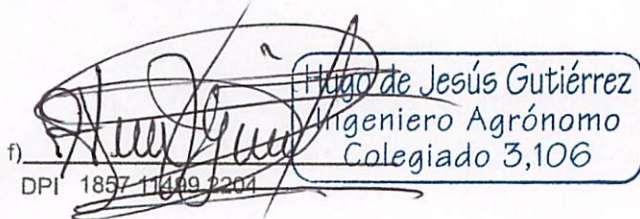 Hugo de Jesús Gutiérrez
Ingeniero Agrónomo
Colegiado 3,106
f)
DPI 1857 11499 2204